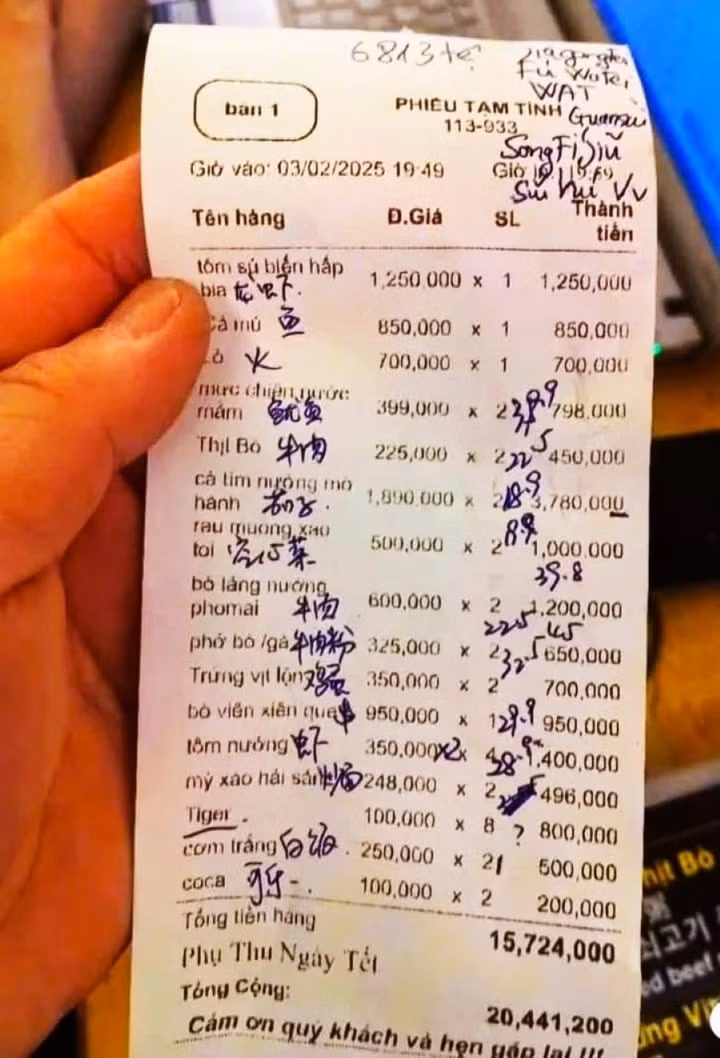 6813
WAT
bàn 1
PHIẾU TẠM TÍNH
113-933
Giờ vào: 03/02/2025 19:49
Giờ
Tên hàng Đ.Giá SL Thành tiền
tôm sú biển hấp
bia 龙虾. 1,250,000 x 1 1,250,000
Cá mú 鱼 850,000 x 1 850,000
700,000 x 1 700,000
mực chiên nước
mắm 鱿鱼 399,000 x 2 798,000
Thịt Bò 牛肉 225,000 x 2 225 450,000
cà tím nướng mỡ
hành 茄子. 1,890,000 x 2 18.9 3,780,000
rau muống xào
tỏi 空心菜 500,000 x 2 89 1,000,000
39.8
bò lảng nướng
phomai 牛肉 600,000 x 2 1,200,000
phở bò /gà 牛肉粉 325,000 x 2 650,000
Trứng vịt lộn 鸡蛋 350,000 x 2 700,000
bò viên xiên que 串 950,000 x 1 29.9 950,000
tôm nướng 虾 350,000 x2 x 4 1,400,000
mỳ xào hải sản 炒面 248,000 x 2 496,000
Tiger . 100,000 x 8 ? 800,000
cơm trắng 白饭 . 250,000 x 2 1 500,000
coca 100,000 x 2 200,000
Tổng tiền hàng 15,724,000
Phụ Thu Ngày Tết
Tổng Cộng: 20,441,200
Cảm ơn quý khách và hẹn gặp lại !!!
hịt Bò
쇠고기
ed beef